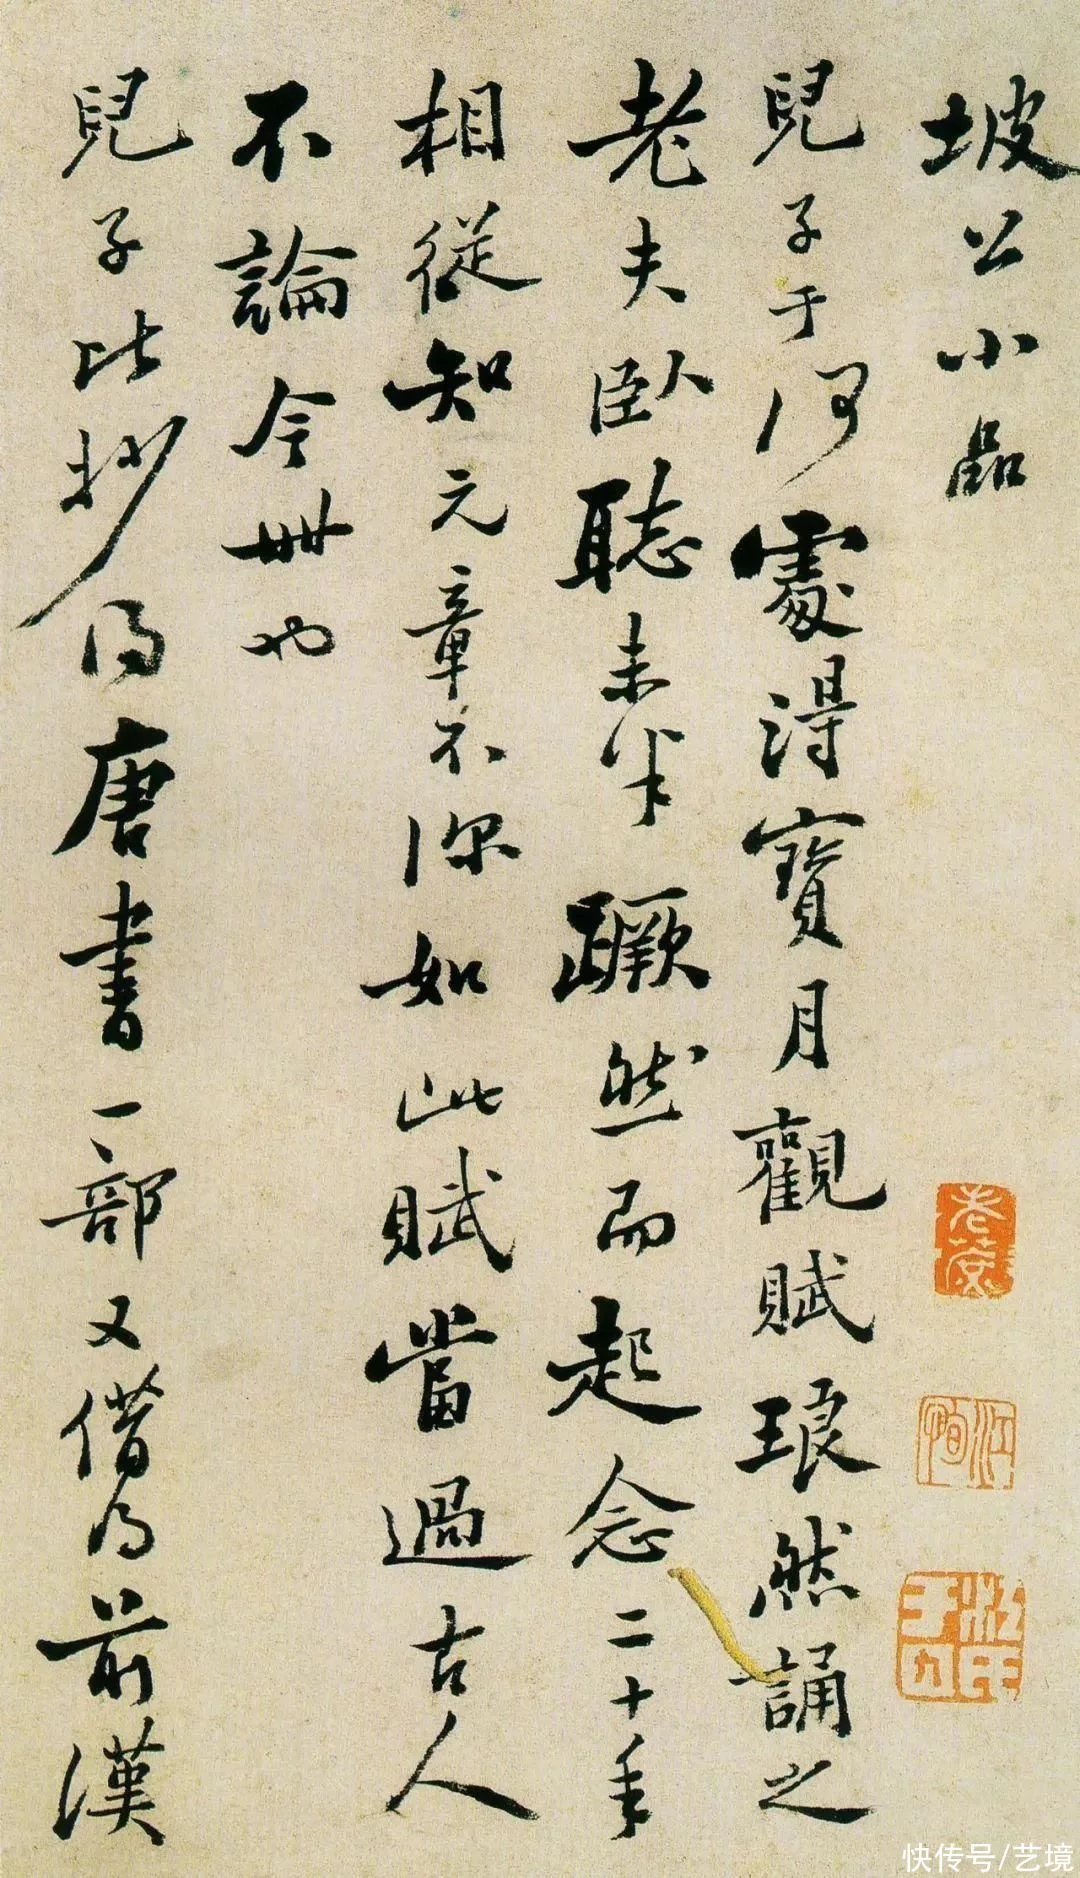 坡公小品
兒子于何處得寶月觀賦琅然誦之
老夫臥聽未半蹶然而起念二十年
相從知元章不深如此賦當過古人
不論今世也
兒子比抄得唐書一部又借得前漢
快传号/艺境